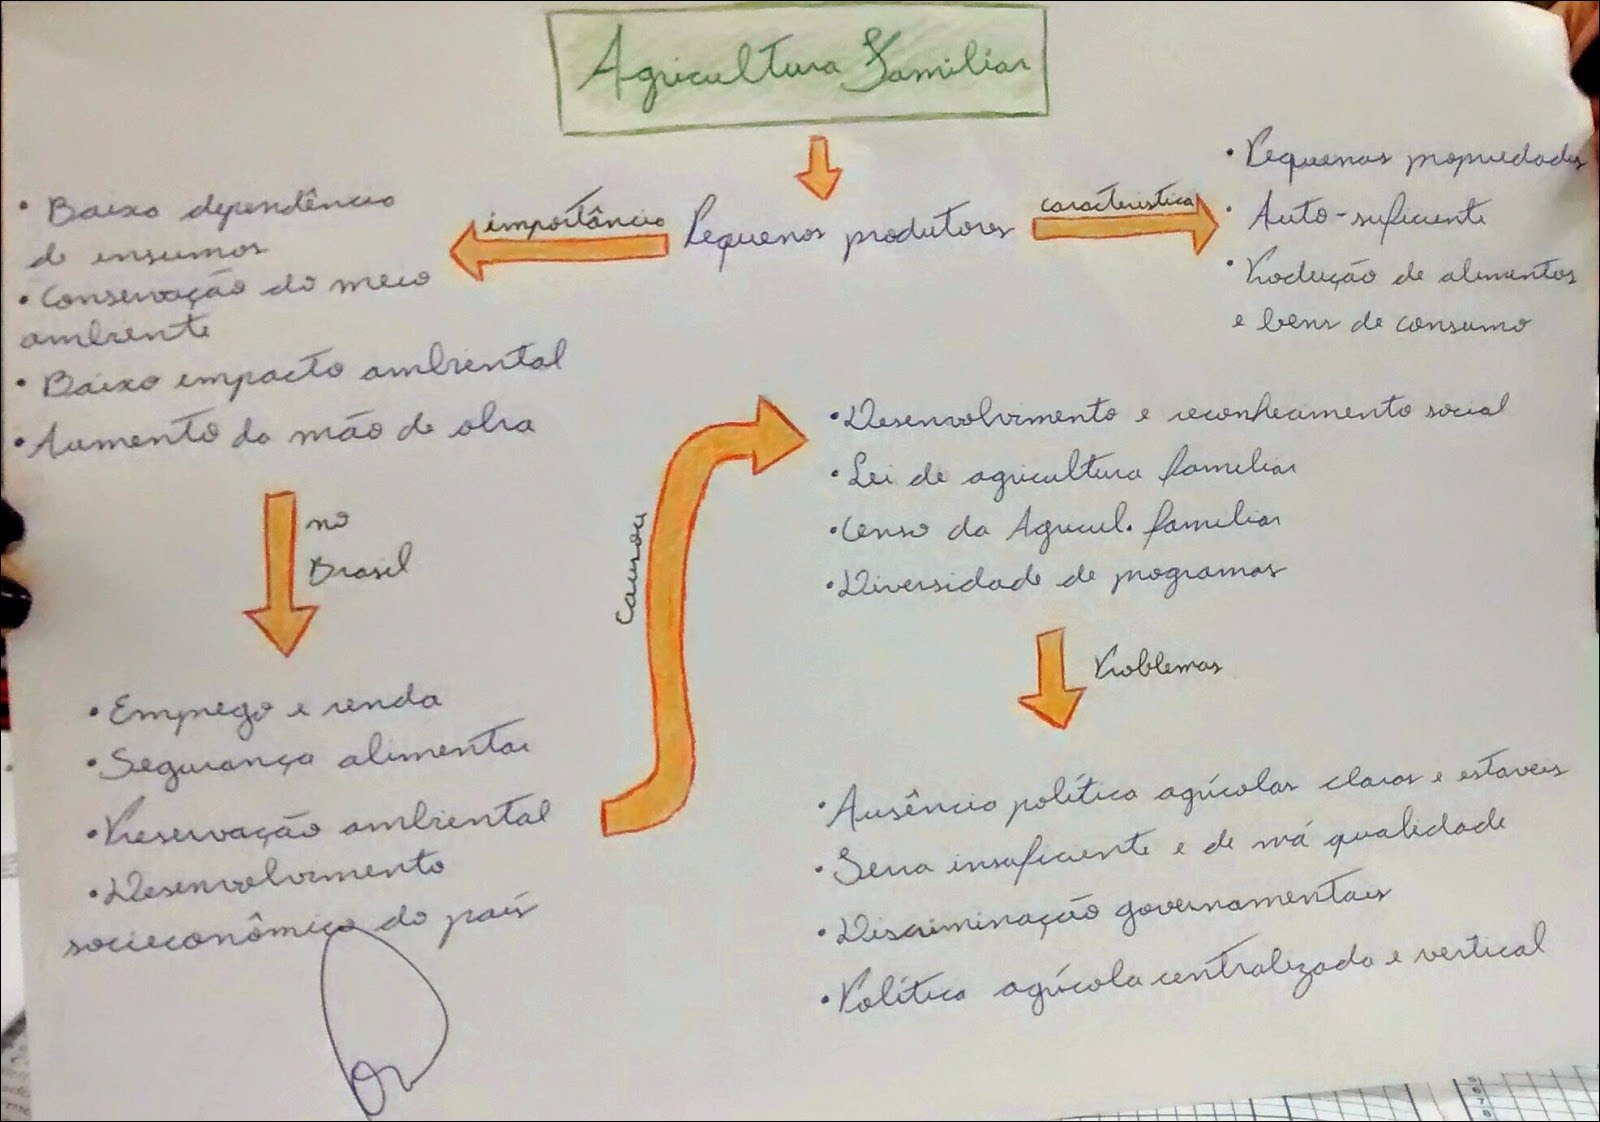 Agricultura Familiar
Pequenos produtores
importância
• Baixo dependência
de insumos
• Conservação do meio
ambiente
• Baixo impacto ambiental
• Aumento da mão de obra
característica
• Pequenas propriedades
• Auto-suficiente
• Produção de alimentos
e bens de consumo
no
Brasil
• Emprego e renda
• Segurança alimentar
• Preservação ambiental
• Desenvolvimento
socieconômico do país
Causou
• Desenvolvimento e reconhecimento social
• Lei de agricultura familiar
• Censo da Agricul. familiar
• Diversidade de programas
Problemas
• Ausência política agrícolas claras e estaveis
• Seria insuficiente e de má qualidade
• Discriminação governamentais
• Política agrícola centralizada e vertical